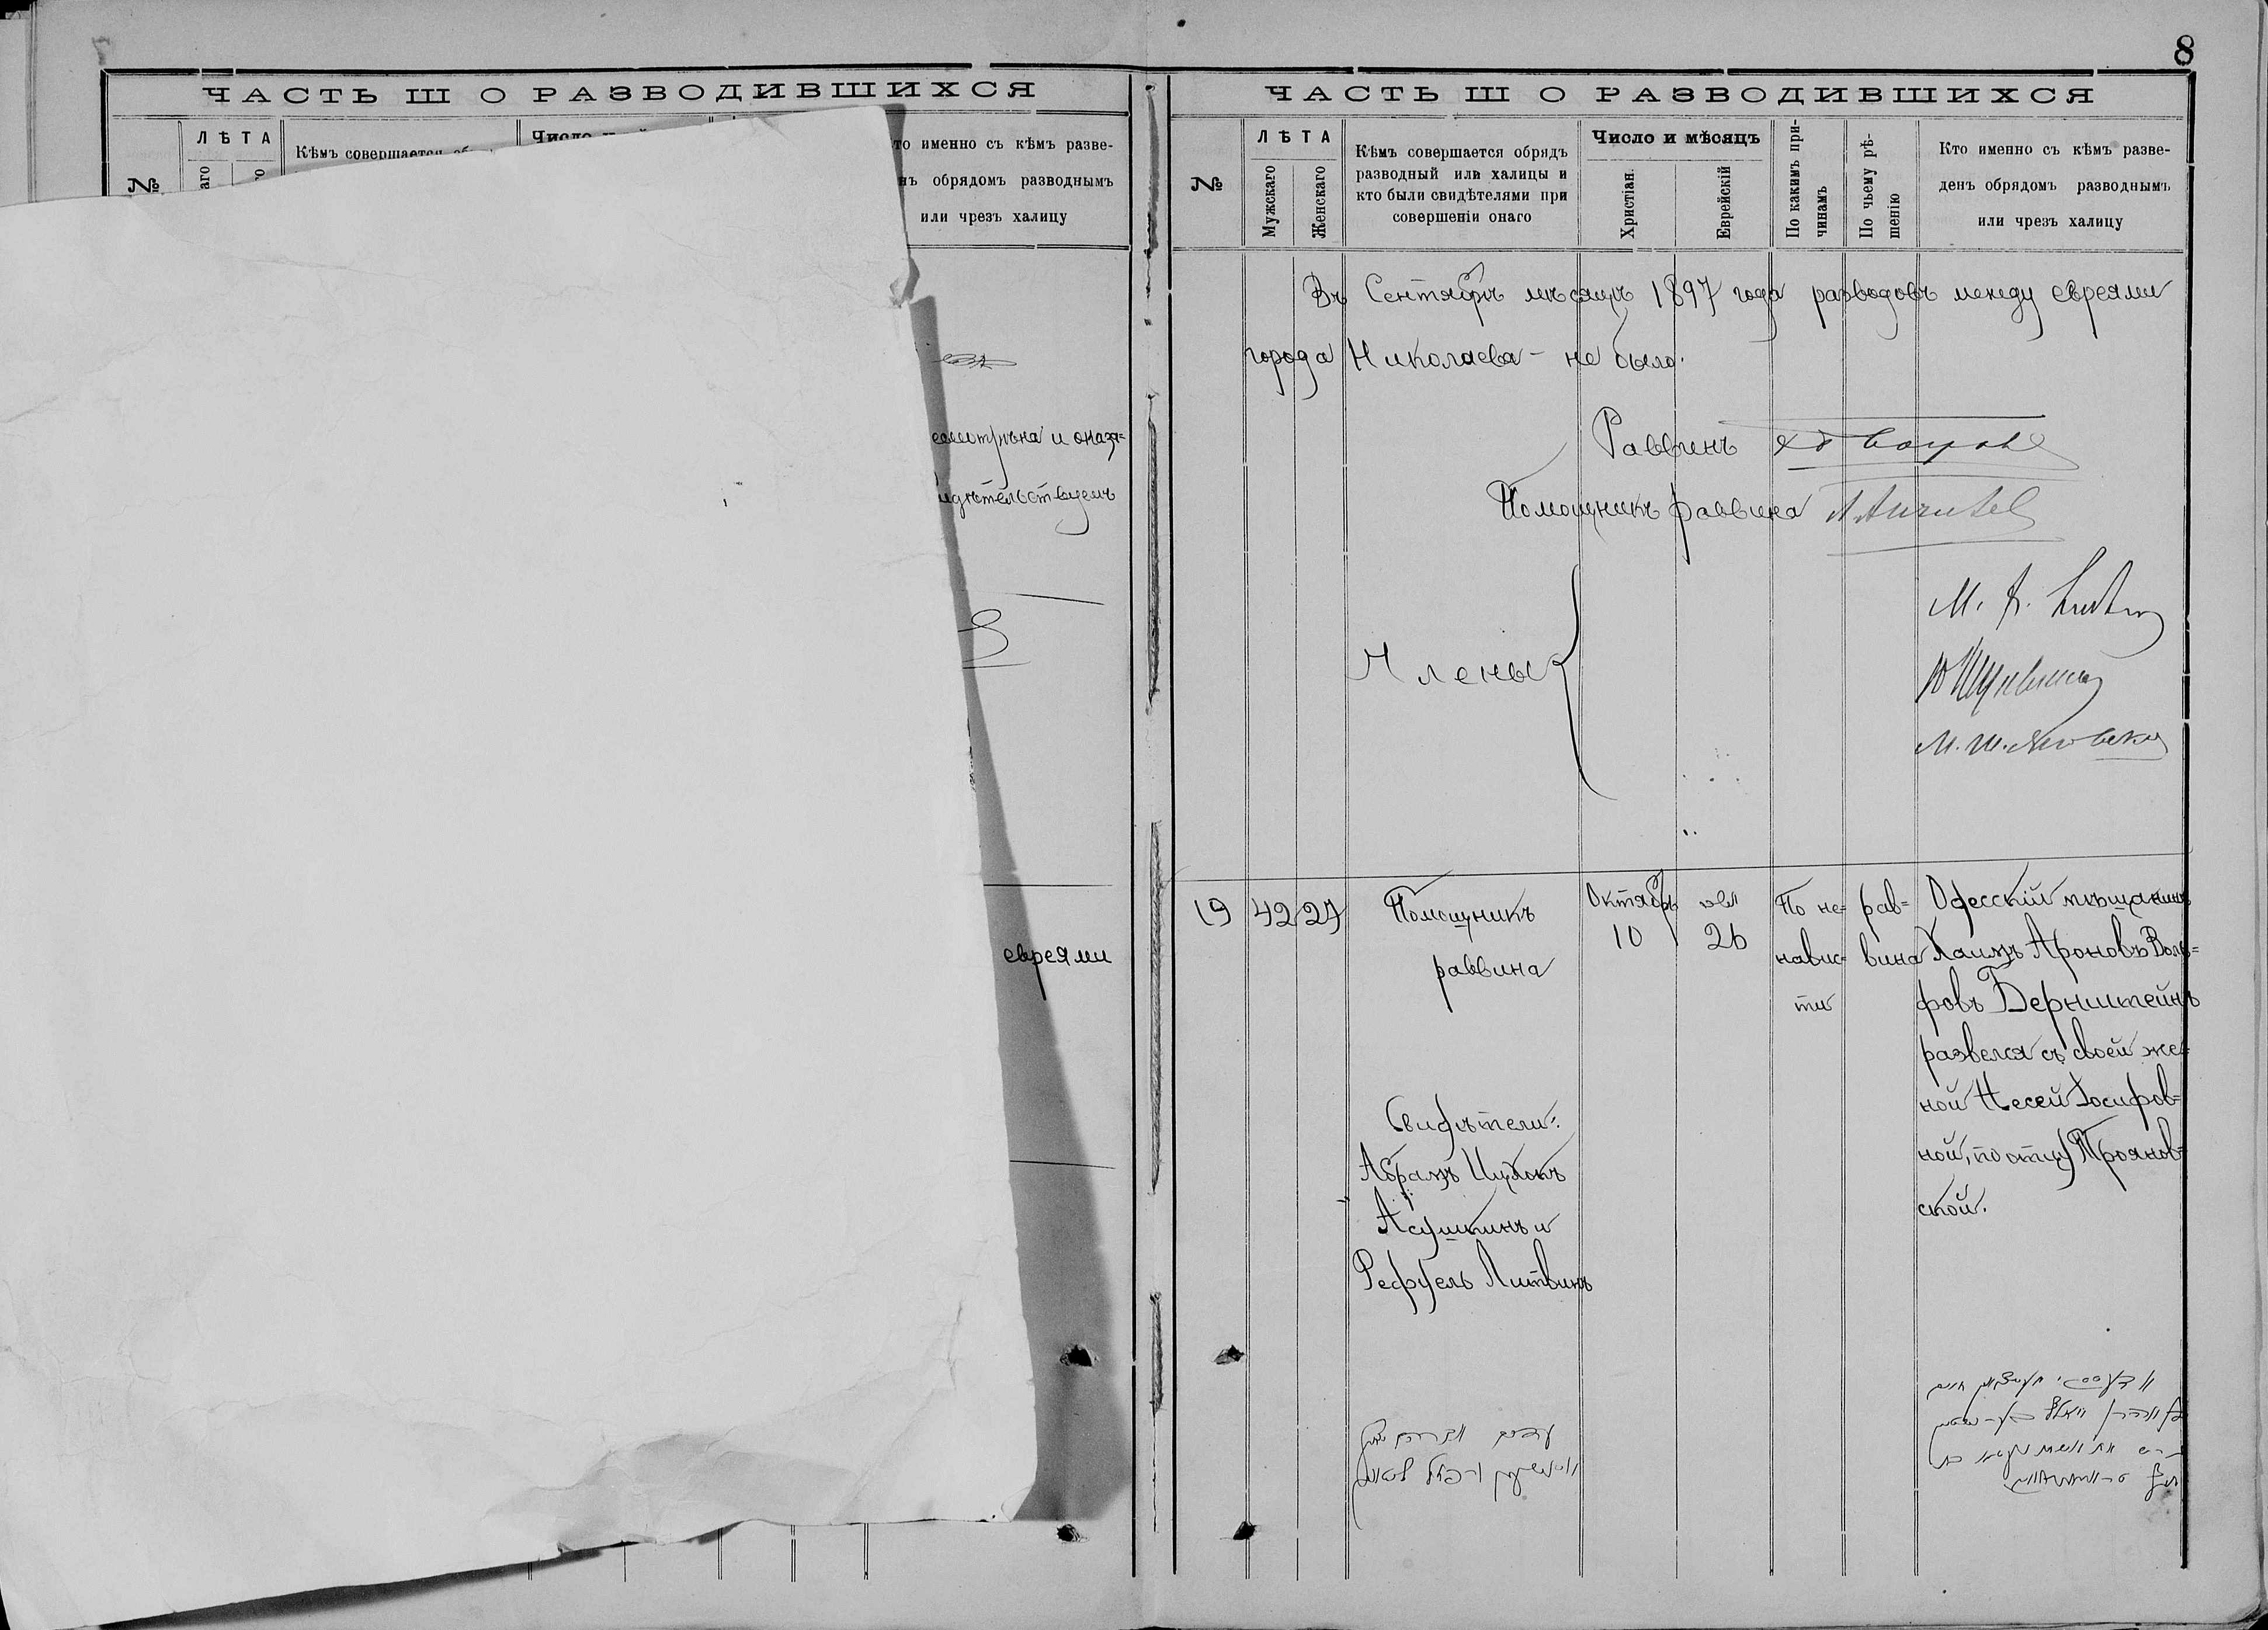 8
ЧАСТЬ Ш О РАЗВОДИВШИХСЯ
ЛѢТА
№
Кѣмъ совершается
Число
то именно съ кѣмъ разве-
нъ обрядомъ разводнымъ
или чрезъ халицу
и оказа=
евреями
ЧАСТЬ Ш О РАЗВОДИВШИХСЯ
№
ЛѢТА
Мужскаго
Женскаго
Кѣмъ совершается обрядъ
разводный или халицы и
кто были свидѣтелями при
совершеніи онаго
Число и мѣсяцъ
Христіан.
Еврейскій
По какимъ при-
чинамъ
По чьему рѣ-
шенію
Кто именно съ кѣмъ разве-
денъ обрядомъ разводнымъ
или чрезъ халицу
Въ Сентябрѣ мѣсяцѣ 1897 года разводовъ между евреями
города Николаева - не было.
Раввинъ
Помощникъ раввина
Члены
19
42
27
Помощникъ
раввина
Свидѣтели:
Абрамъ Ицхокъ
Асушкинъ и
Рефуель Литвинъ
Октябрь
10
26
По не=
навис-
ти
рав=
вина
Одесскій мѣщанинъ
Хаимъ Ароновъ Воль=
фовъ Бернштейнъ
развелся съ своей же=
ной Несей Іосифов=
ной, по отцу Троянов=
ской.